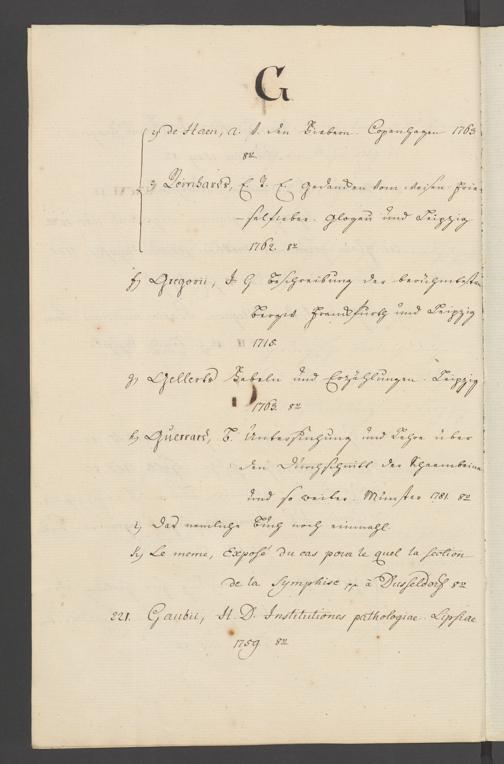 G
y) de Haen, A. v. den Fiebern. Copenhagen 1763
8º.
z) Reinhards, C. T. E. Gedancken vom weisen Frie-
selfieber. Glogau und Leipzig
1762. 8º
f) Gregorii, J. G. Beschreibung der berühmtesten
Berge. Franckfurth und Leipzig
1715.
g) Gellerts Fabeln und Erzählungen. Leipzig
1763. 8º
h) Guerard, B. Untersuchung und Lehre über
den Durchschnitt der Schaambeine
und so weiter. Münster 1781. 8º
i) Das nemliche Buch noch einmahl
k) Le meme, Exposé du cas pour le quel la section
de la Symphise pp à Dusseldorf 8º
221. Gaubii, H. D. Institutiones pathologiae. Lipsiae
1759. 8º